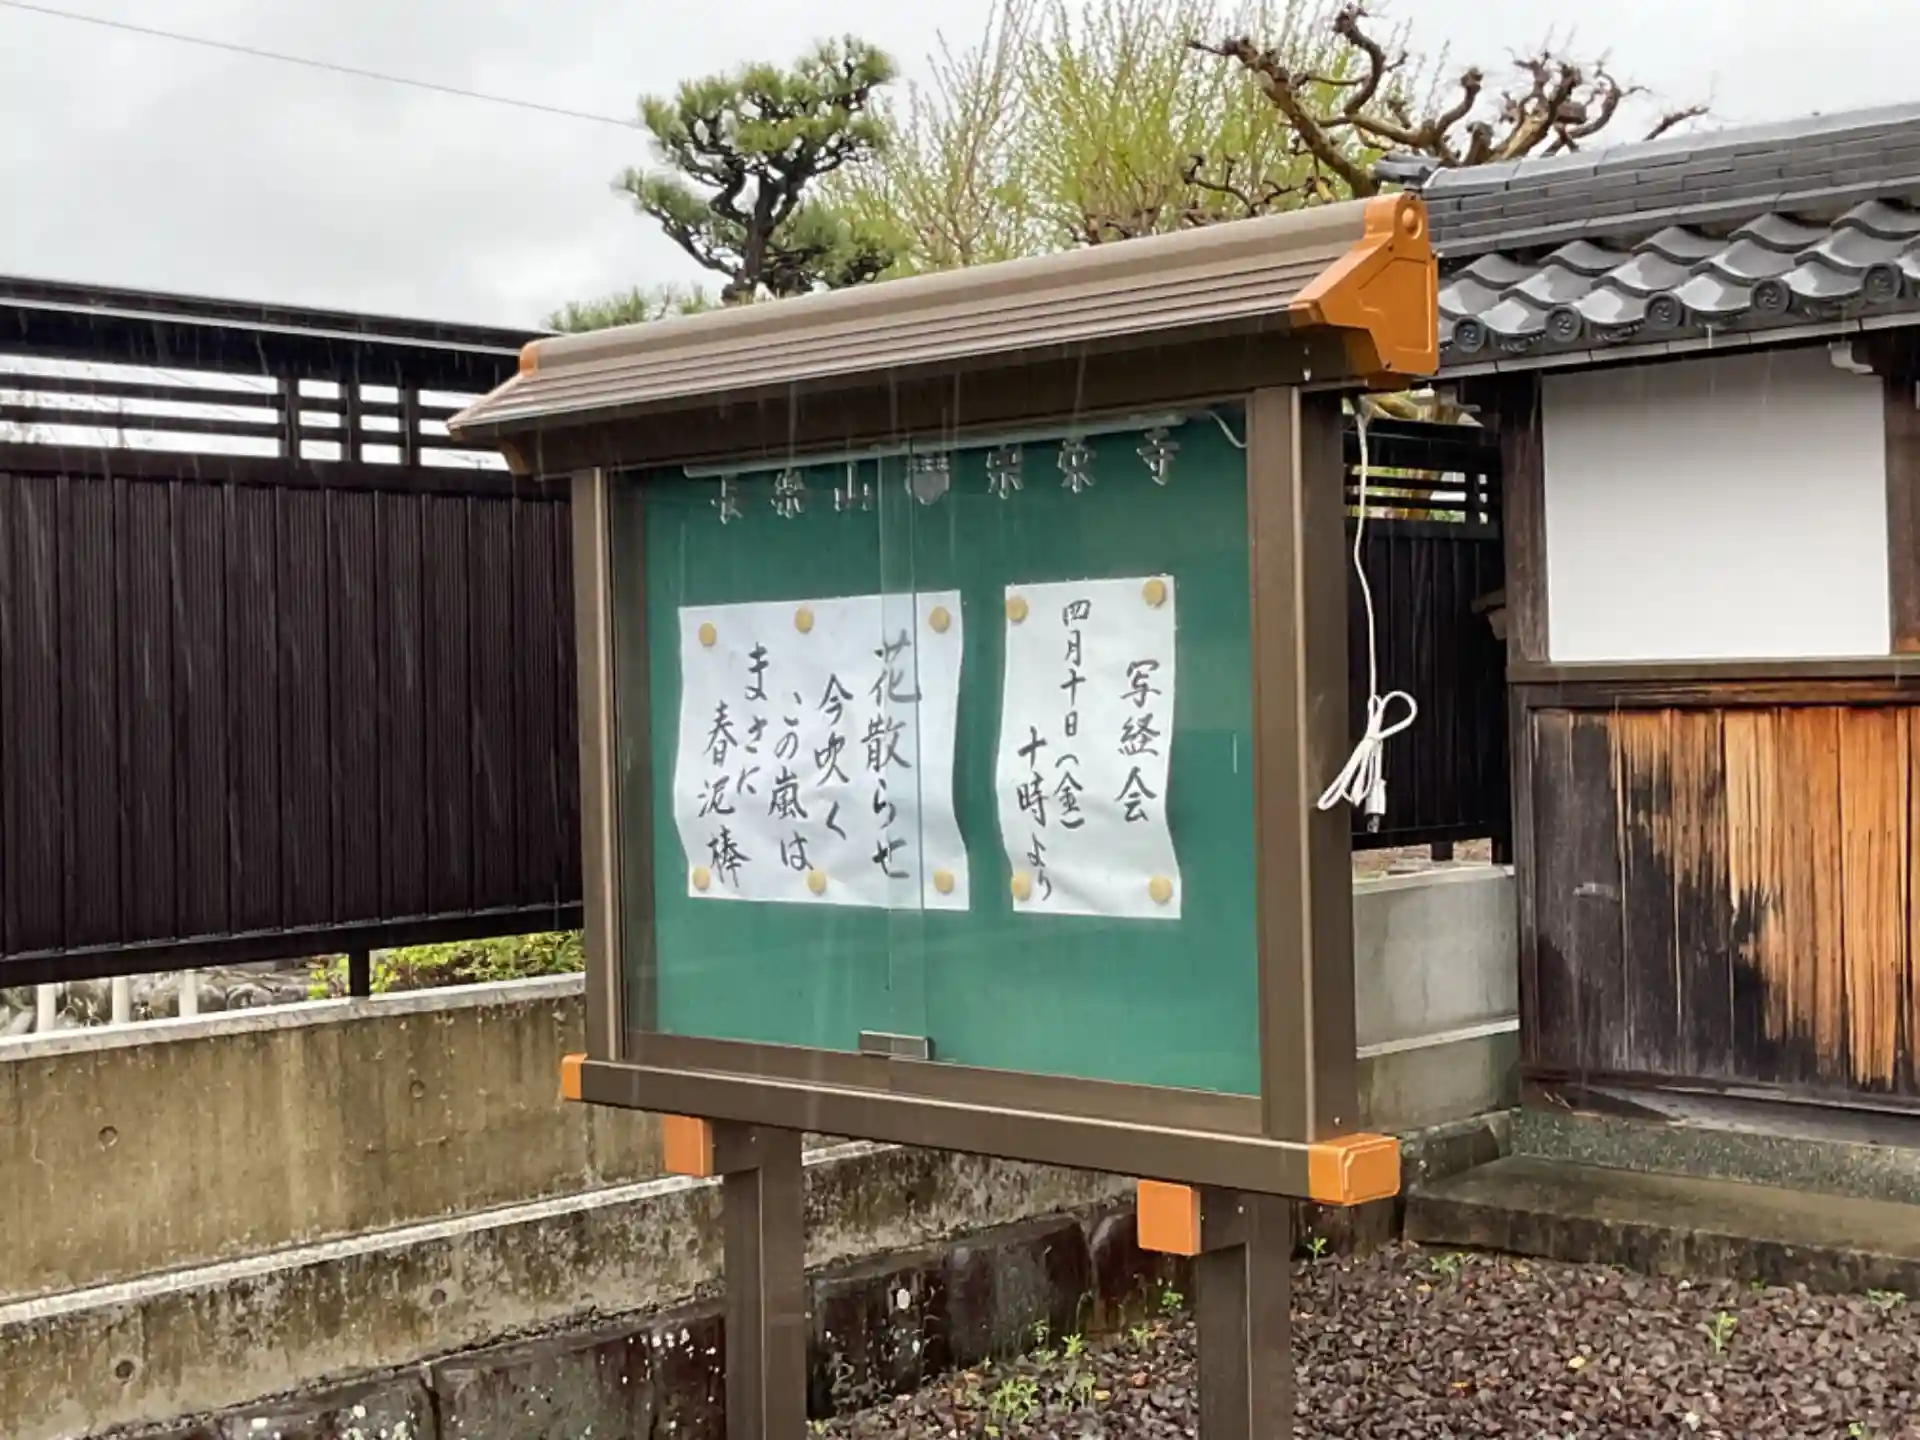 長樂山 宗栄寺
写経会
四月十日(金)
十時より
花散らせ
今吹く
この嵐は
まさに
春泥棒